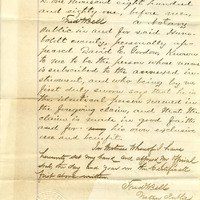 one thousand eight hundred
and eighty one, before me
Fred W Bell a Notary
Public in and for said Hum-
boldt County, personally ap-
peared David E. Gordon, Known
to me to be the person whose name
is subscribed to the annexed in-
strument, and who being by me
first duly sworn say that he is
the identical person named in
the foregoing claim, and that the
claim is made in good faith
and for his own exclusive
use and benefit.
In Witness Whereof I have
hereunto set my hand and affixed my Official
Seal the day and year in this Certificate
first above written
Fred W Bell
Notary Public